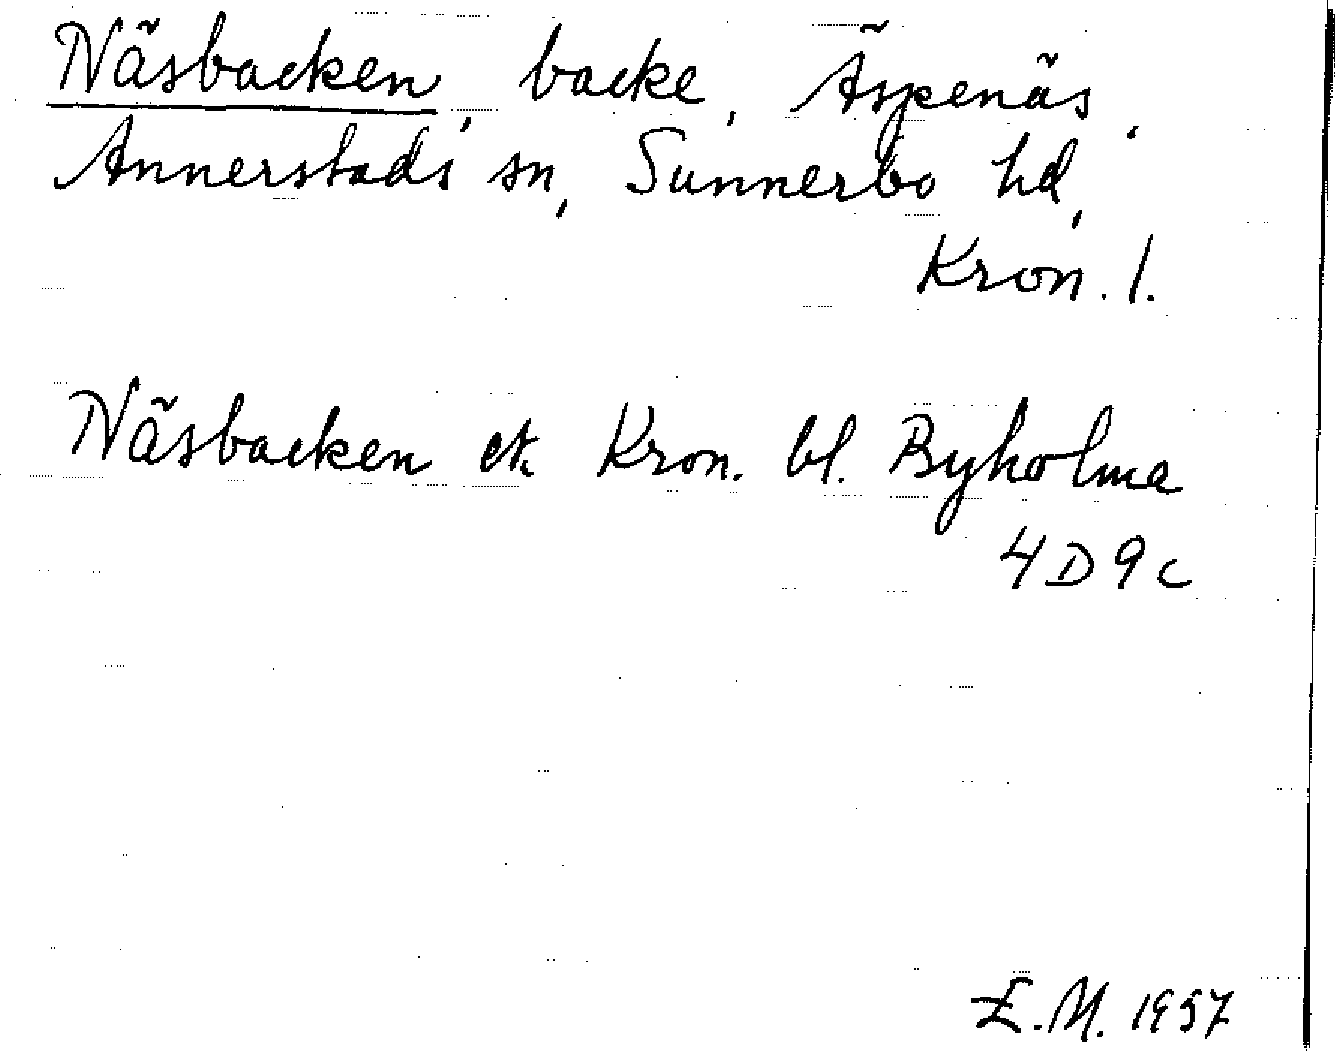 Näsbacken, backe, Äspenäs,
Annerstads sn, Sunnerbo hd,
Kron. l.
Näsbacken ek Kron. bl. Byholma
4D9c
E.M. 1957